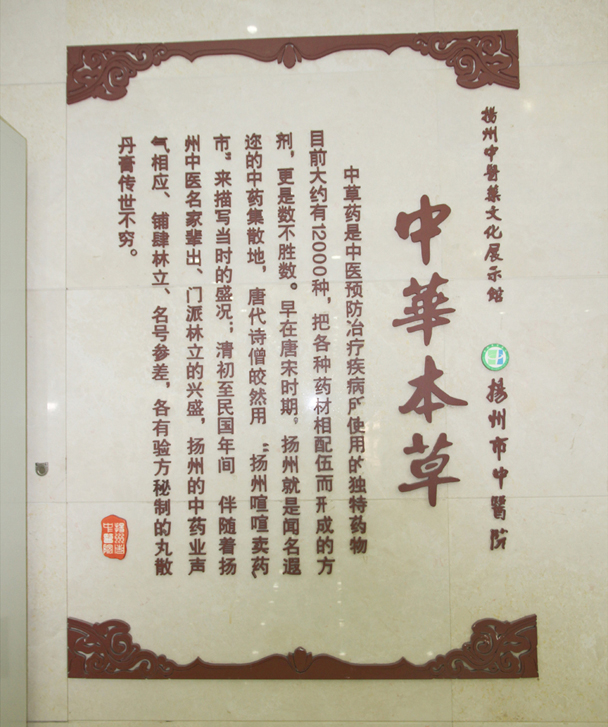 扬州中醫藥文化展示馆
揚州市中醫院
中華本草
中草药是中医预防治疗疾病所使用的独特药物
目前大约有12000种，把各种药材相配伍而形成的方
剂，更是数不胜数。早在唐宋时期，扬州就是闻名遐
迩的中药集散地，唐代诗僧皎然用“扬州喧喧卖药
市”来描写当时的盛况；清初至民国年间 伴随着扬
州中医名家辈出、门派林立的兴盛，扬州的中药业声
气相应、铺肆林立、名号参差，各有验方秘制的丸散
丹膏传世不穷。
揚州市
中醫院